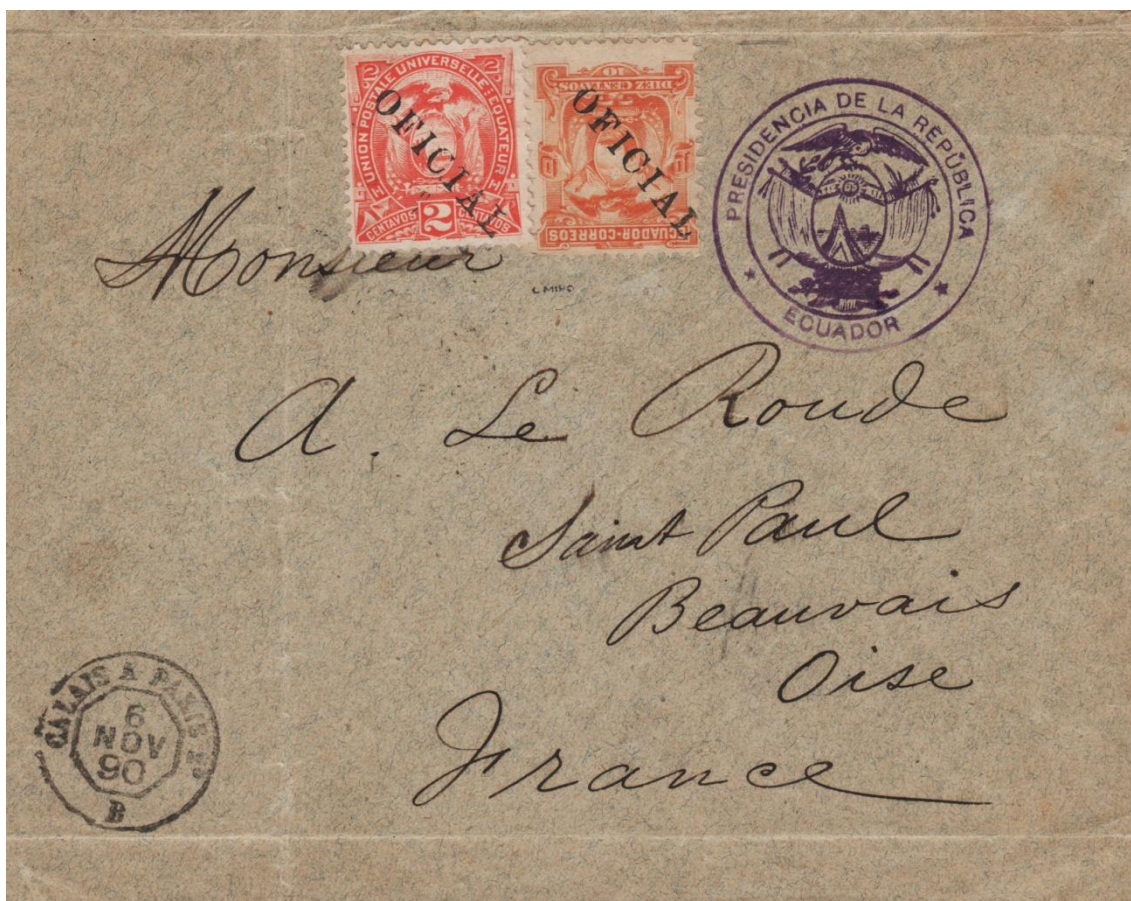 UNION POSTALE UNIVERSELLE · EQUATEUR
2 CENTAVOS 2 CENTAVOS
OFICIAL
10
DIEZ CENTAVOS
OFICIAL
ECUADOR-CORREOS
PRESIDENCIA DE LA REPÚBLICA
ECUADOR
Monsieur
A. Le Roude
Saint Paul
Beauvais
Oise
France
CALAIS A PARIS
6
NOV
90
B